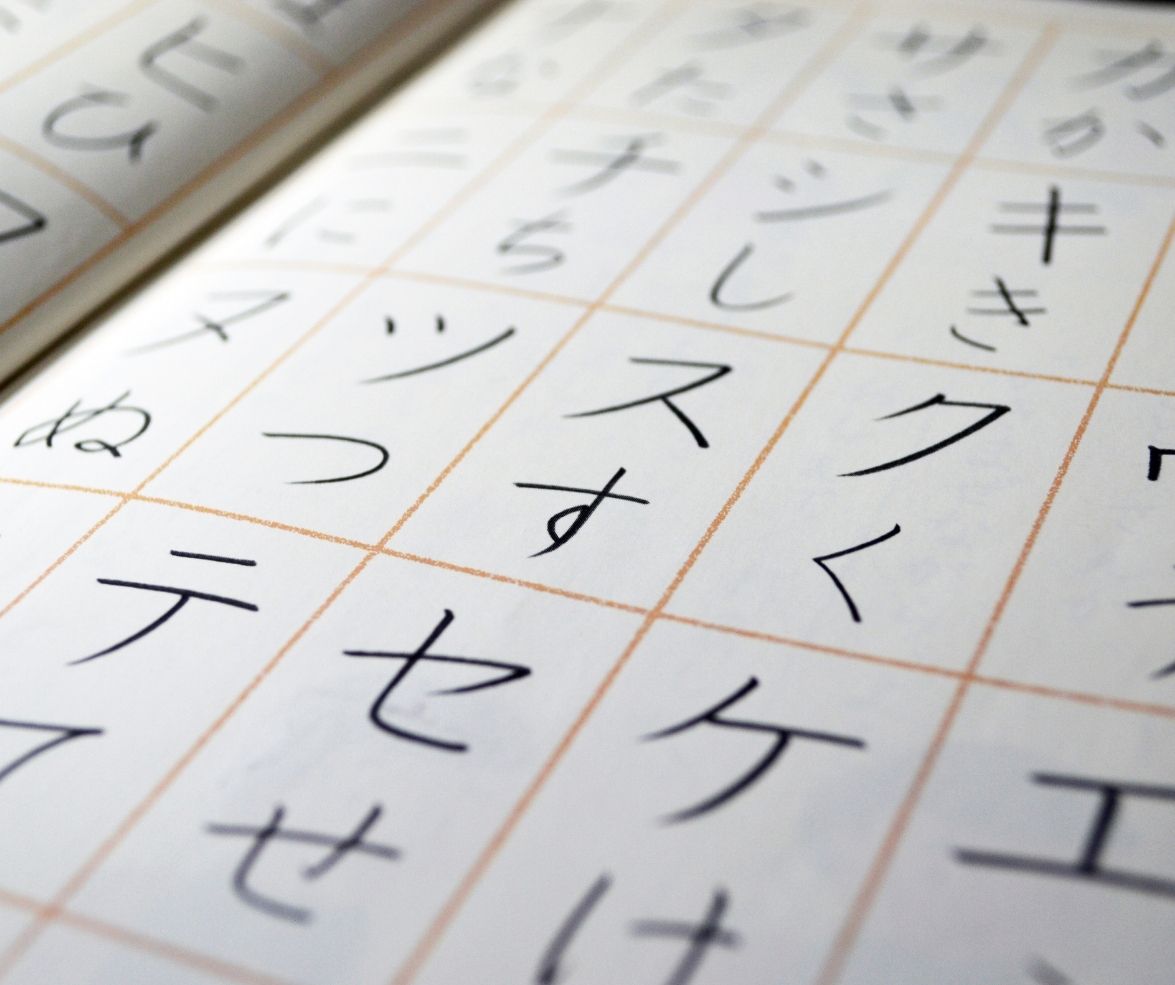 ヒ
ひ
タ サ カ
た さ か
ニ チ シ キ
に ち し き
ヌ ツ ス ク
ぬ つ す く
テ セ ケ エ
せ け